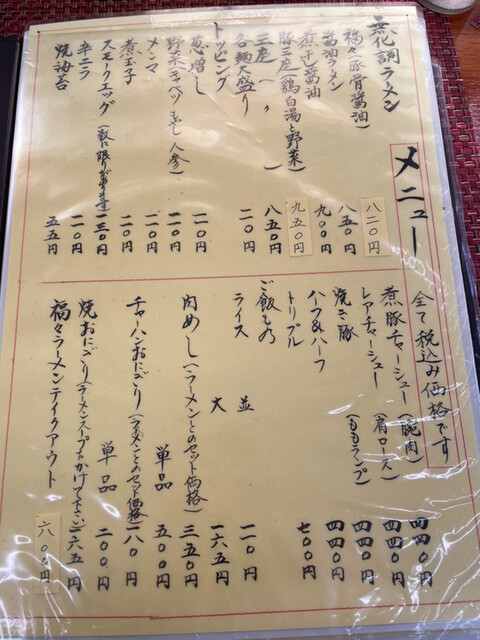 メニュー
全て税込み価格です
無化調ラーメン
福々豚骨醤油)
八二〇円
醤油ラーメン
八五〇円
煮干し醤油
九〇〇円
豚三座(鶏白湯と野菜)
九五〇円
三座(〃)
八五〇円
各麺大盛り
二〇円
トッピング
葱増し
二〇円
野菜(キャベツもやし人参)
二〇円
メンマ
二〇円
煮玉子
二〇円
スモークエッグ
一三〇円
辛ニラ
二〇円
焼海苔
五五円
煮豚チャーシュー(腕肉)
四四〇円
レアチャーシュー(肩ロース)
四四〇円
焼き豚(ももランプ)
四四〇円
ハーフ&ハーフ
四四〇円
トリプル
七〇〇円
ご飯もの
ライス 並
二〇円
大
一六五円
肉めし(ラーメンとのセット価格)
三五〇円
単品
五〇〇円
チャーハンおにぎり(ラーメンとのセット価格)
一八〇円
単品
二〇〇円
焼おにぎり(ラーメンスープをかけて下さい)
一六五円
福々ラーメンテイクアウト
六〇〇円